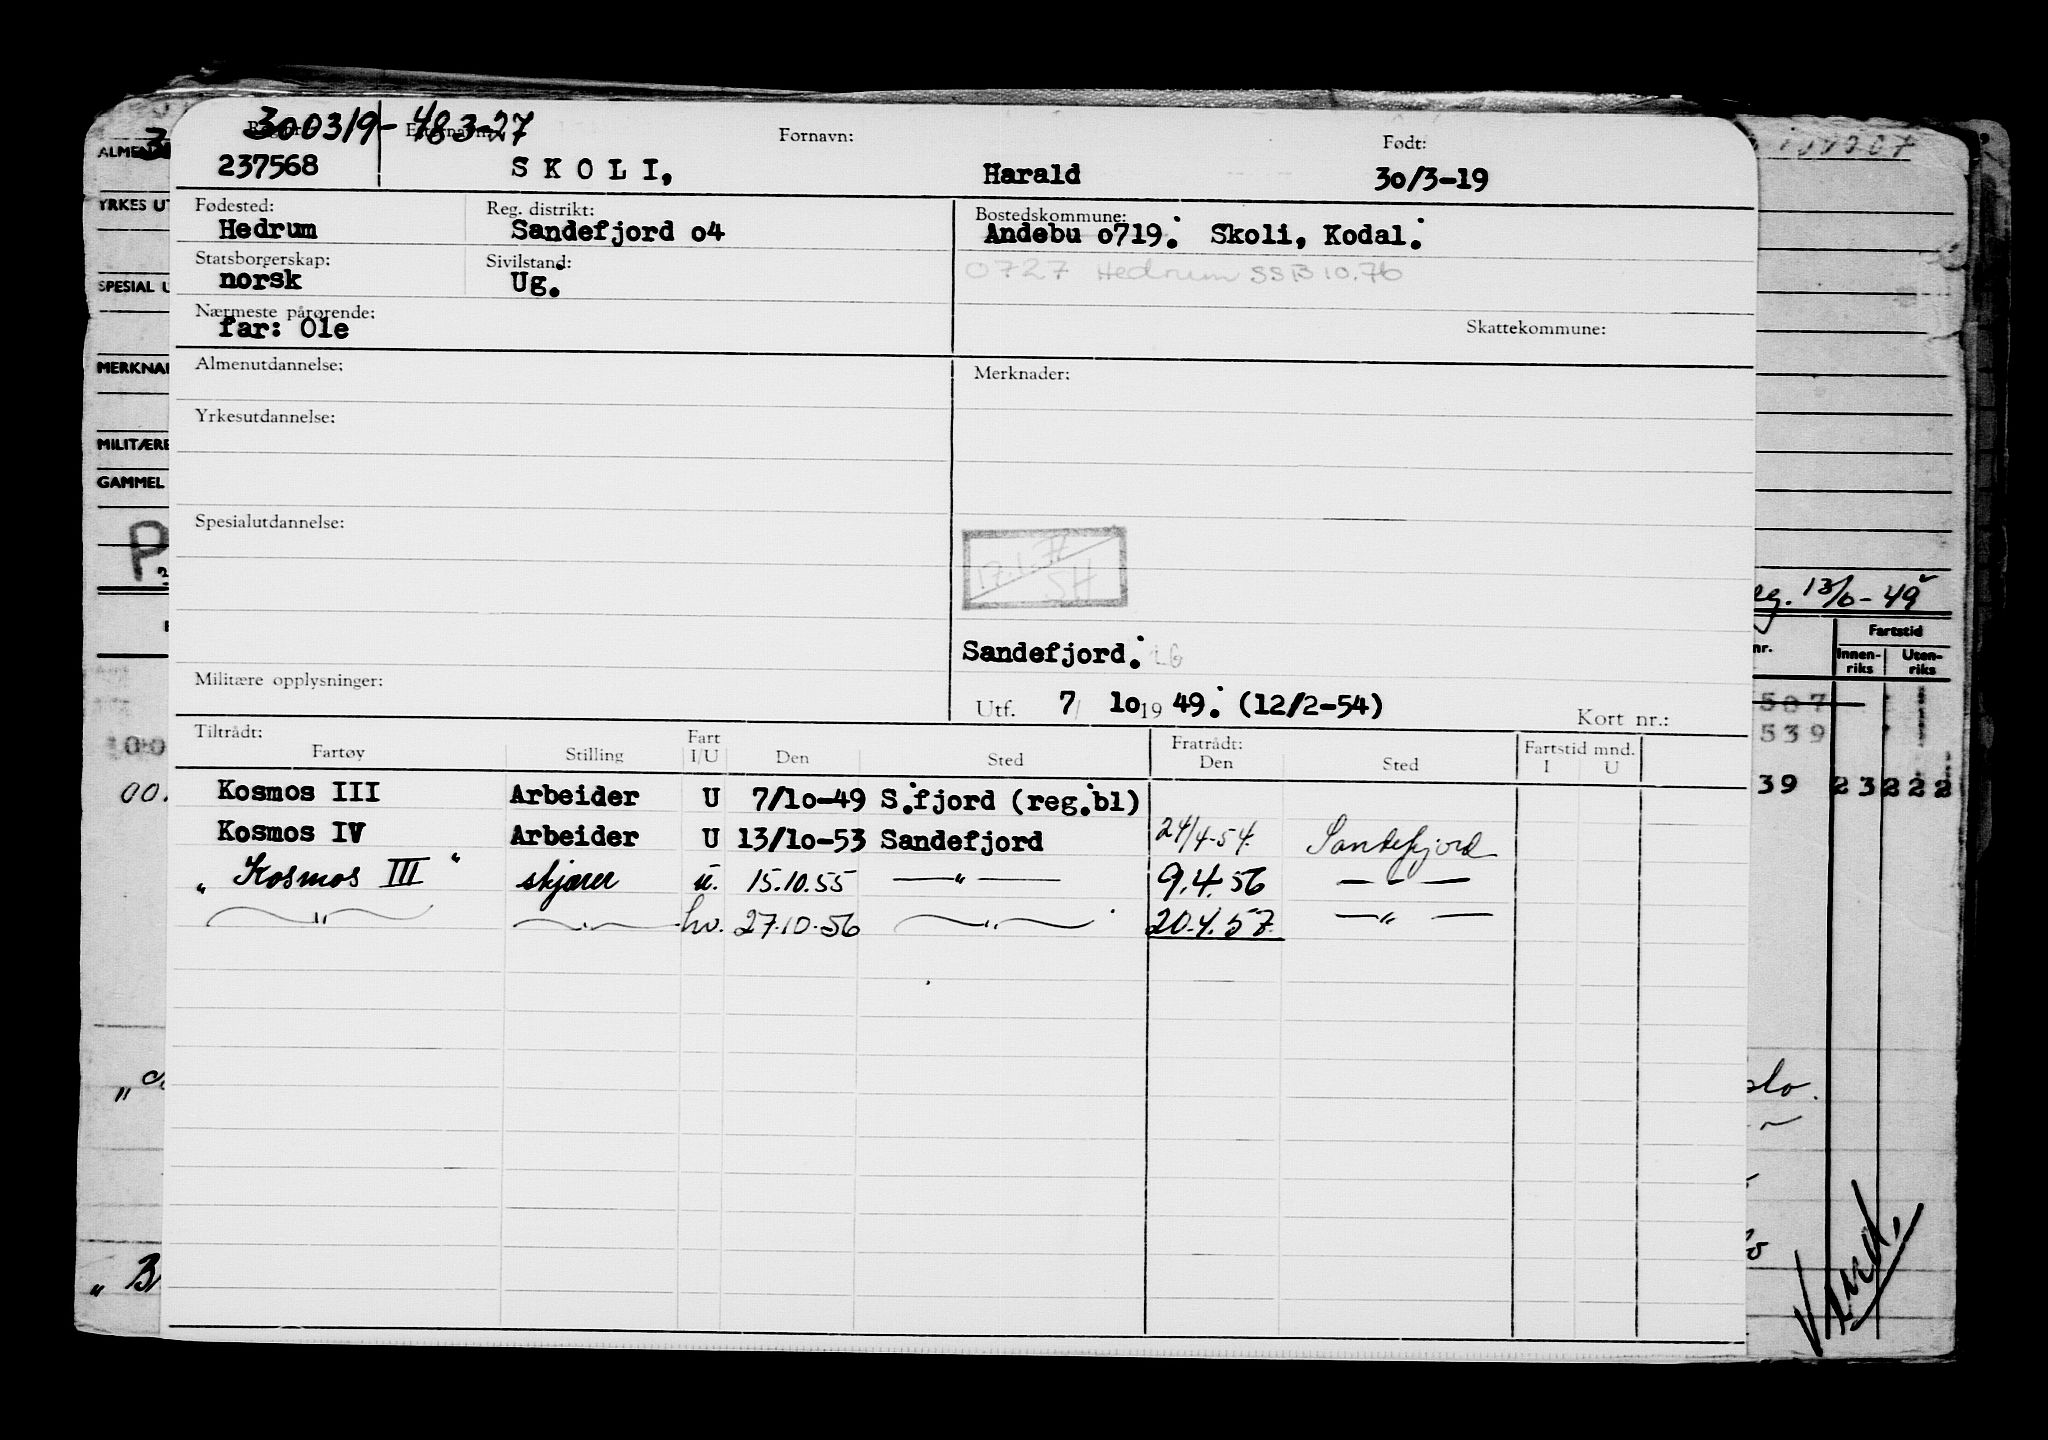 300319-48327
Etternavn: Fornavn: Født:
237568 SKOLI, Harald 3o/3-19
Fødested: Reg. distrikt: Bostedskommune:
Hedrum Sandefjord o4 Andebu o719. Skoli, Kodal.
Statsborgerskap: Sivilstand: 0727 Hedrum SSB 10.76
norsk Ug.
Nærmeste pårørende: Skattekommune:
far: Ole
Almenutdannelse: Merknader:
Yrkesutdannelse:
Spesialutdannelse:
SH
Sandefjord.
Militære opplysninger:
Utf. 7/ 1o 19 49. (12/2-54) Kort nr.:
Tiltrådt: Fratrådt: Fartstid mnd.
Fartøy Stilling Fart I/U Den Sted Den Sted I U
Kosmos III Arbeider U 7/1o-49 S.fjord (reg.bl)
Kosmos IV Arbeider U 13/1o-53 Sandefjord 24/4-54. Sandefjord
„Kosmos III" skjærer u. 15.10.55 — " — 9.4.56 — " —
— " — — " — hv. 27.10.56 — " — 20.4.57. — " —
ALMEN
YRKES UT
SPESIAL U
MERKNA
MILITÆRE
GAMMEL
P
13/6-49
Fartstid
nr. Innen-riks Uten-riks
507
539
39 23 222
00.
slo.
„ B